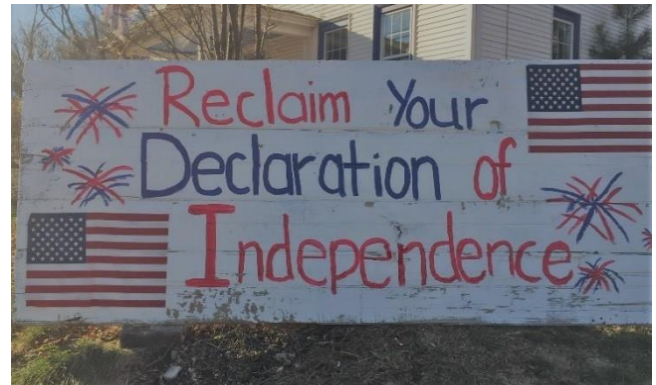 Reclaim Your
Declaration of
Independence